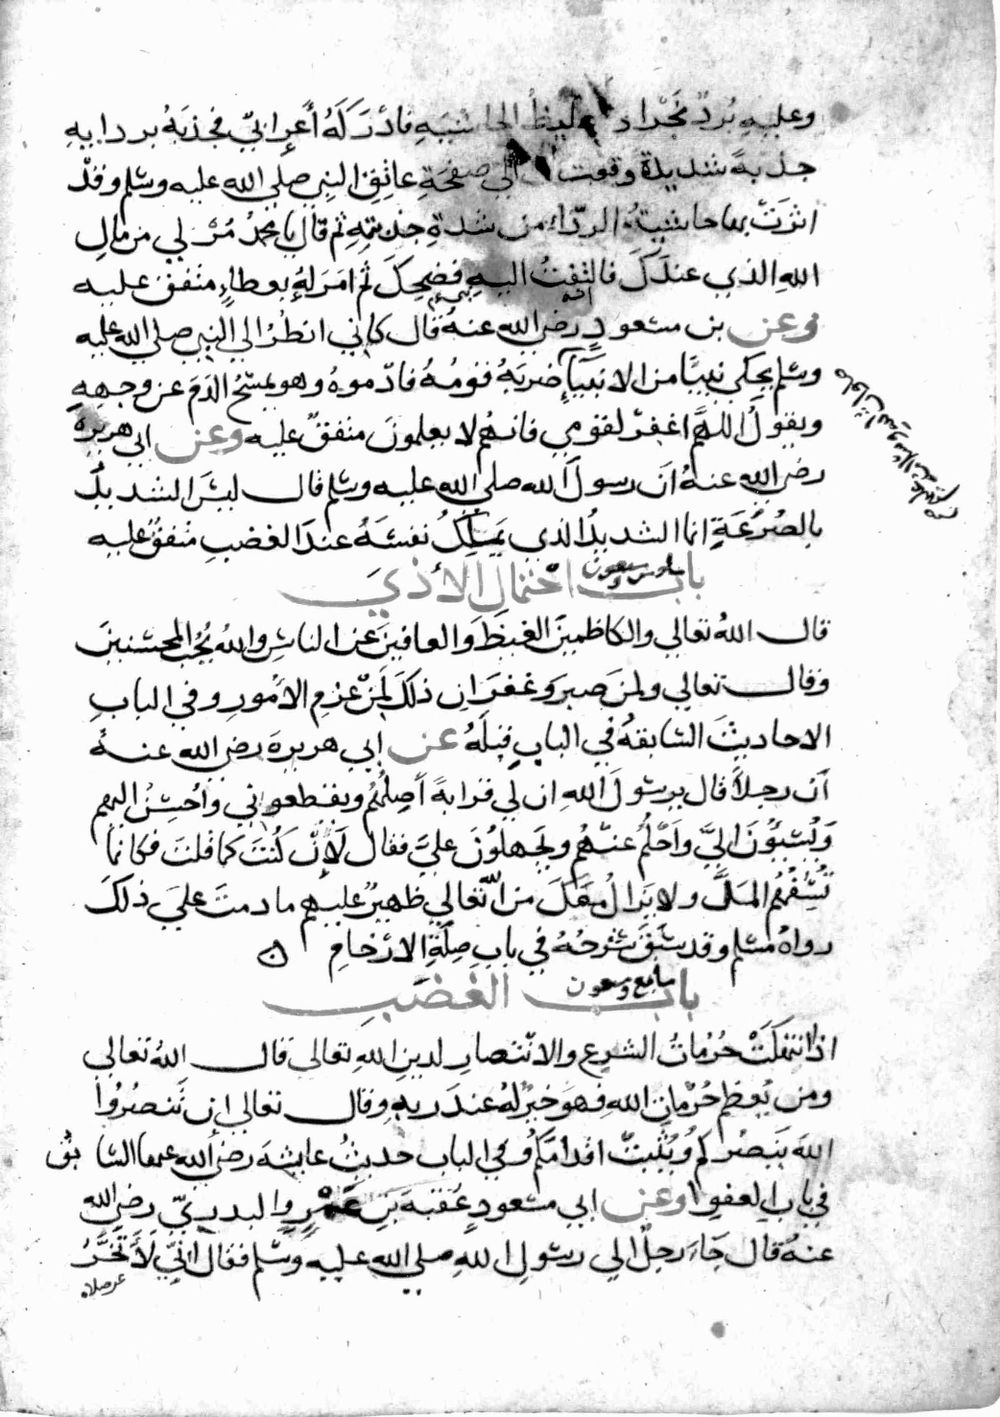 وعليه بُردٌ نَجْراني غليظُ الحاشيةِ فادْرَكَهُ أعرابيّ فجذبَهُ بردايهِ
جذبةً شديدة وقعت الي صفحَةِ عاتِقِ النبي صلي الله عليه وسلم وقدْ
اثرَتْ بها حاشيةُ الرداء من شدةِ جذبتِهِ ثم قال يا محمدُ مُرْ لي من مالِ
اللهِ الذي عندَكَ فالتفتُ اليهِ فضحِكَ ثم امَرَ لهُ بعطاءٍ متفق عليه
وعن بن مسعودٍ رضي الله عنهُ قال كاني انظُرُ الي النبي صلي الله عليه
وسلم يحكي نبيًّا من الانبيآءِ ضربَهُ قومُهُ فادموهُ وهو يمسَحُ الدَمَ عن وجههِ
ويقولُ اللهمَّ اغفِرْ لقومي فانهُم لا يعلمونَ متفقٌ عليه وعن ابي هريرة
رضي الله عنهُ انَ رسولَ الله صلي الله عليه وسلم قال ليسَ الشديدُ
بالصُرَعَةِ انما الشديدُ الذي يَملِكُ نفسَهُ عندَ الغضبِ متفقٌ عليه
باب سادس وسبعون احتمال الأذي
قال اللهُ تعالي والكاظمينَ الغيظَ وَالعافينَ عن الناسِ واللهُ يُحبُ المحسنينَ
وقال تعالي ولمن صبرَ وغفرَ ان ذلكَ لَمِنْ عزمِ الأمورِ وفي البابِ
الاحاديثَ السابقهُ في البابِ قبلَهُ عن ابي هريرةَ رضي الله عنهُ
أنَ رجلاً قال يرسُولَ اللهِ ان لي قرابةً أصِلُهُم ويقطعوني واُحْسِنُ اليهم
وَيُسيئونَ اليَّ واَحْلُمُ عنهُم ويَجهلونَ عليَّ فقال لَإنْ كُنتَ كما قلتَ فكانما
تُسِفُّهُمُ المَلَّ ولا يَزالُ معكَ من الله تعالي ظهيرٌ عليهم ما دمتَ عليَ ذلكَ
رواهُ مسلم وقد سبَقَ شرحُهُ في باب صِلَةِ الارْحامِ
باب سابع وسبعون الغضَب
اذا انتهكَتْ حُرُماتُ الشرعِ والانتصارِ لدينِ اللهِ تعالي قال اللهُ تعالي
ومن يُعظم حُرُماتِ اللهِ فهوَ خيرٌ لهُ عندَ ربهِ وقال تعالي ان تَنصُرُوا
اللهَ يَنصُركُم ويُثبِّتْ اقدامَكُم وفي الباب حديثُ عايشهَ رضي الله عنها السابقُ
في باب العفو وعن ابي مسعودٍ عُقبَةَ بنِ عَمْرٍو البدريّ رضي الله
عنهُ قال جَاءَ رجلٌ الي رسُولِ اللهِ صلي الله عليه وسلم فقال انيّ لأتَأخَّرُ
عن صلاه